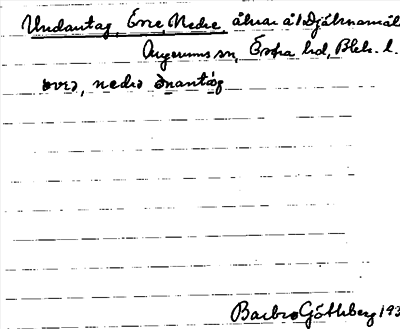 Undantag, Övre, Nedre, åkrar å Djäknamåla
Augerums sn, Östra hd, Blek. l.
övrə, nedrə ònantàg
Barbro Götlsberg 193